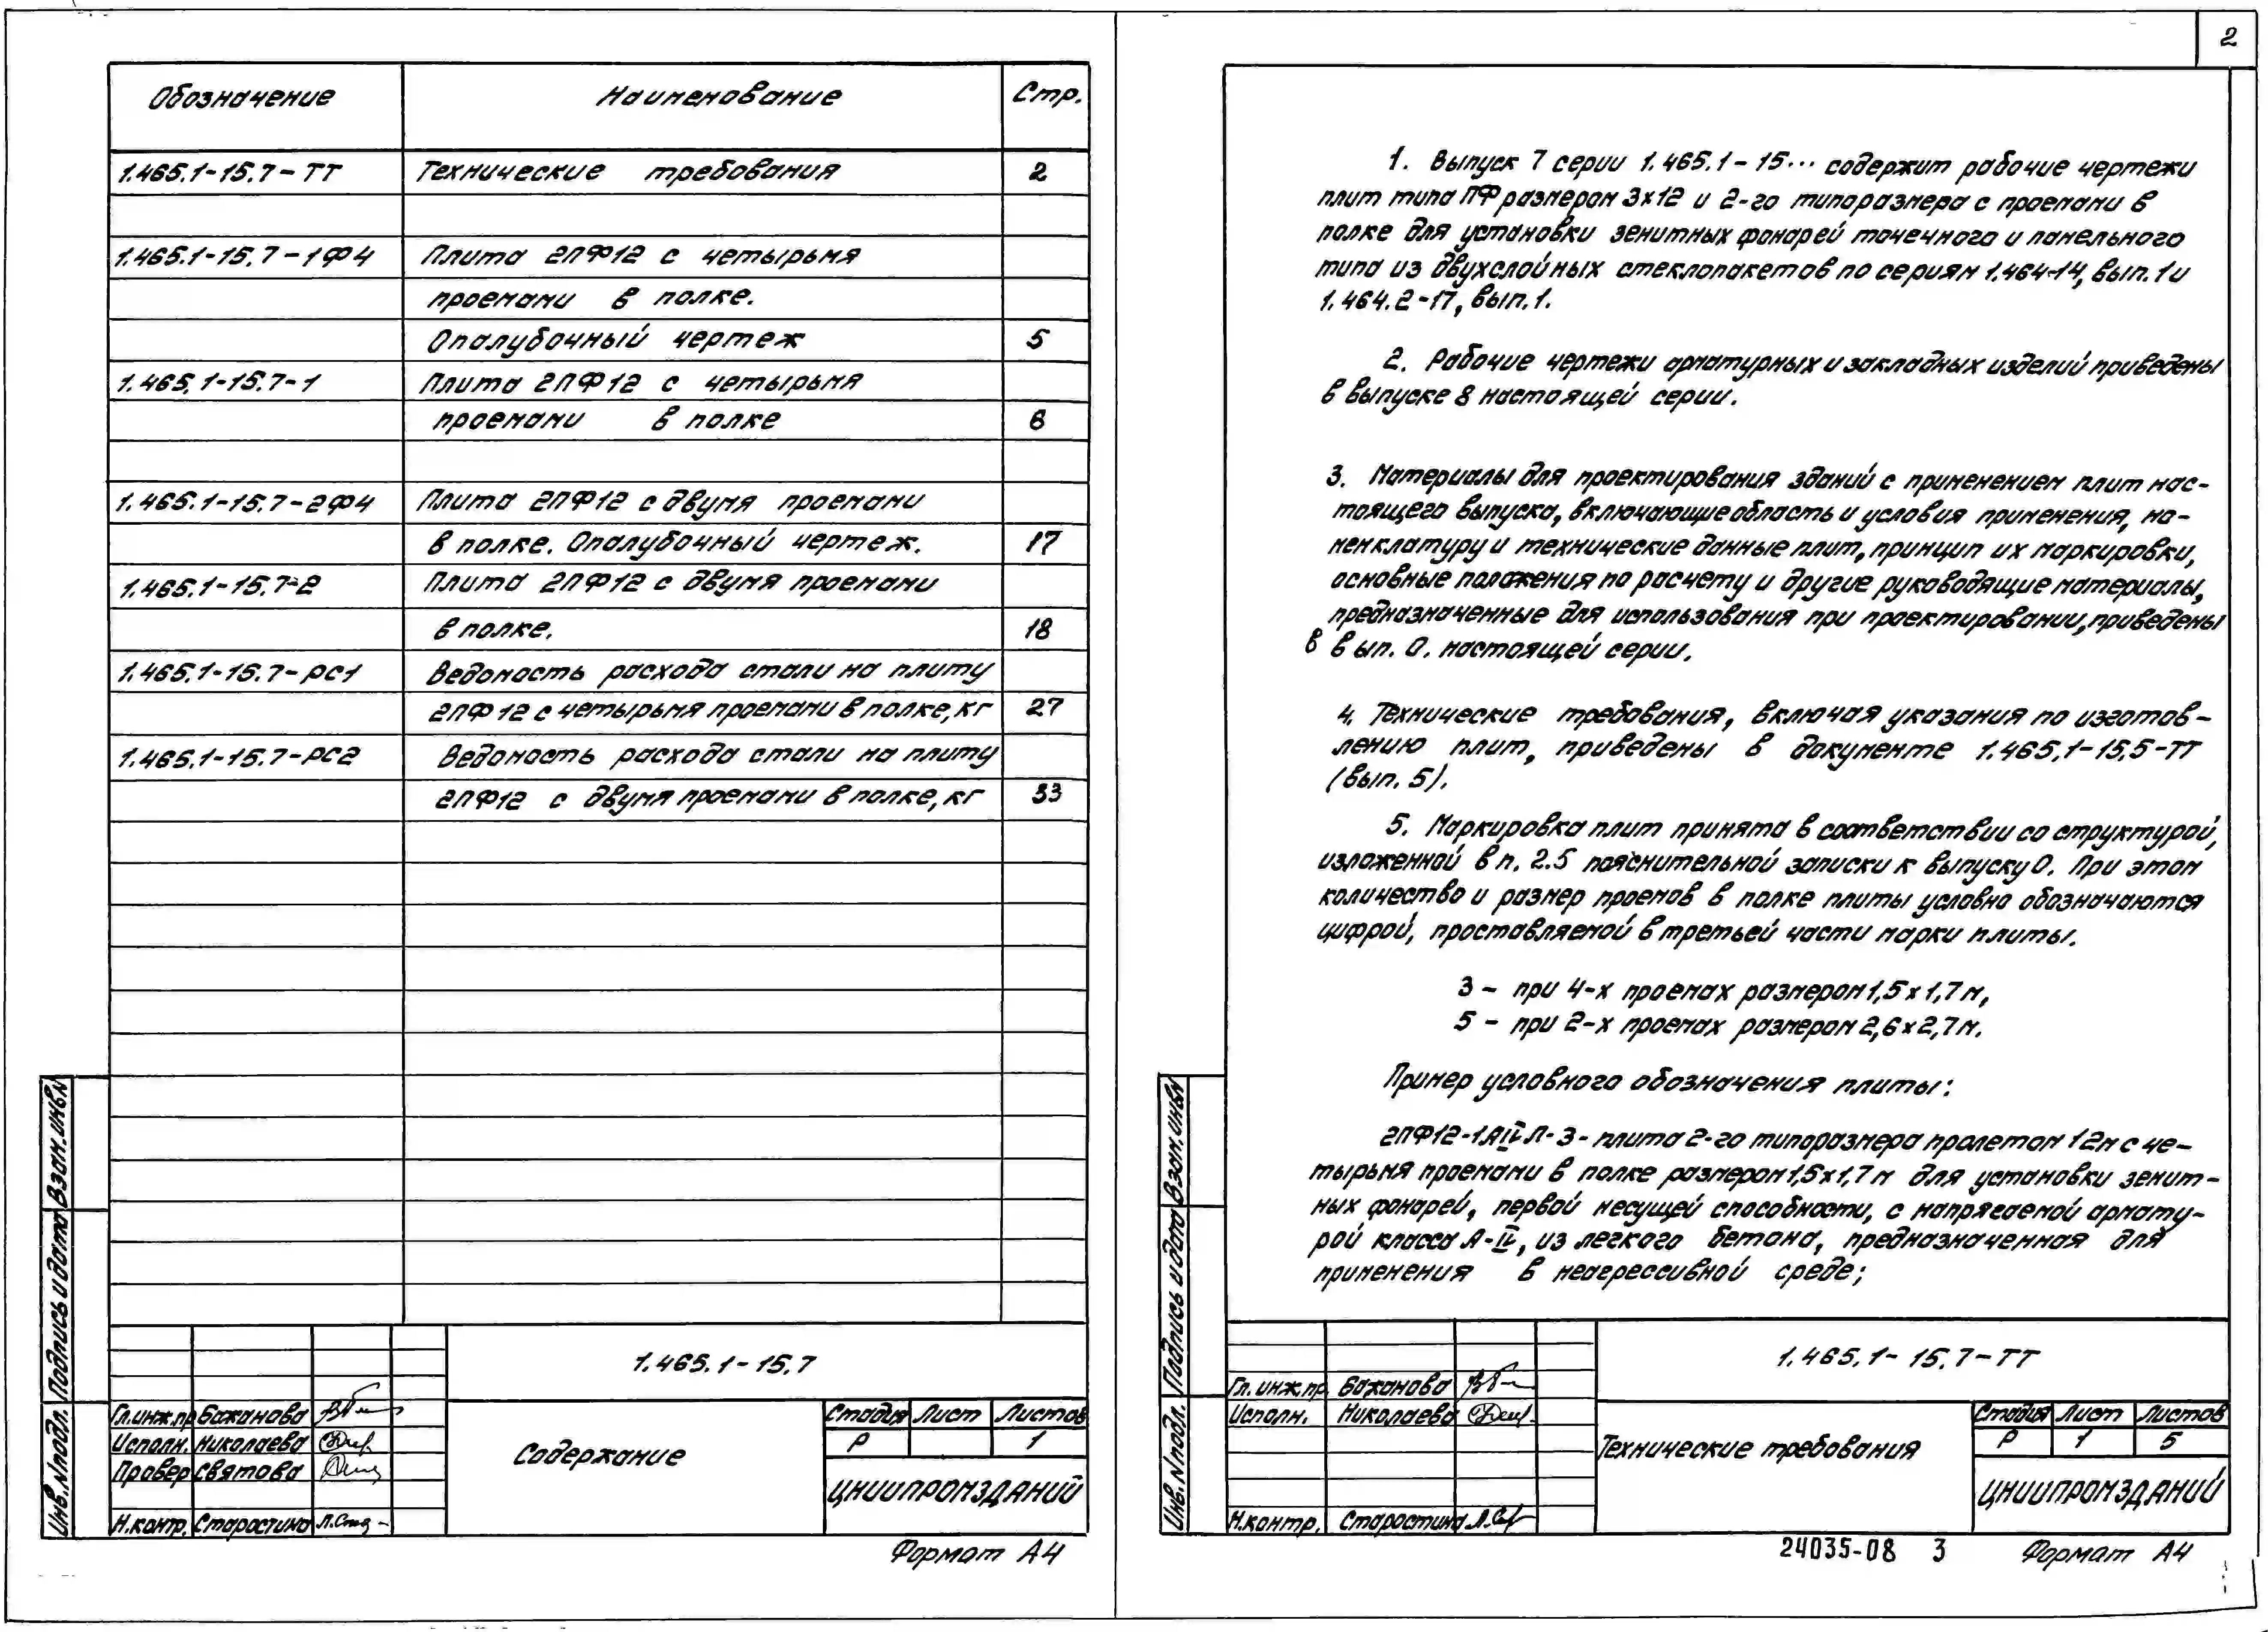 Обозначение Наименование Стр.
1.465.1-15.7-ТТ Технические требования 2
1.465.1-15.7-1Ф4 Плита 2ПФ12 с четырьмя
проемами в полке.
Опалубочный чертеж 5
1.465.1-15.7-1 Плита 2ПФ12 с четырьмя
проемами в полке 6
1.465.1-15.7-2Ф4 Плита 2ПФ12 с двумя проемами
в полке. Опалубочный чертеж. 17
1.465.1-15.7-2 Плита 2ПФ12 с двумя проемами
в полке. 18
1.465.1-15.7-РС1 Ведомость расхода стали на плиту
2ПФ12 с четырьмя проемами в полке, кг 27
1.465.1-15.7-РС2 Ведомость расхода стали на плиту
2ПФ12 с двумя проемами в полке, кг 33
Взам. инв.N
Подпись и дата
Инв. N подл.
1.465.1-15.7
Гл.инж.пр Бажанова
Исполн. Николаева
Провер Святова
Н.контр. Старостина
Содержание
Стадия Лист Листов
Р 1
ЦНИИПРОМЗДАНИЙ
Формат А4
2
1. Выпуск 7 серии 1.465.1-15... содержит рабочие чертежи
плит типа ПФ размером 3х12 и 2-го типоразмера с проемами в
полке для установки зенитных фонарей точечного и панельного
типа из двухслойных стеклопакетов по сериям 1.464-14, вып.1 и
1.464.2-17, вып.1.
2. Рабочие чертежи арматурных и закладных изделий приведены
в выпуске 8 настоящей серии.
3. Материалы для проектирования зданий с применением плит нас-
тоящего выпуска, включающие область и условия применения, но-
менклатуру и технические данные плит, принцип их маркировки,
основные положения по расчету и другие руководящие материалы,
предназначенные для использования при проектировании, приведены
в вып. 0. настоящей серии.
4. Технические требования, включая указания по изготов-
лению плит, приведены в документе 1.465.1-15.5-ТТ
(вып. 5).
5. Маркировка плит принята в соответствии со структурой,
изложенной в п. 2.5 пояснительной записки к выпуску 0. При этом
количество и размер проемов в полке плиты условно обозначаются
цифрой, проставляемой в третьей части марки плиты.
3 - при 4-х проемах размером 1,5х1,7м,
5 - при 2-х проемах размером 2,6х2,7м.
Пример условного обозначения плиты:
2ПФ12-1АIVЛ-3- плита 2-го типоразмера пролетом 12м с че-
тырьмя проемами в полке размером 1,5х1,7м для установки зенит-
ных фонарей, первой несущей способности, с напрягаемой армату-
рой класса А-IV, из легкого бетона, предназначенная для
применения в неагрессивной среде;
Взам. инв.N
Подпись и дата
Инв. N подл.
1.465.1-15.7-ТТ
Гл.инж.пр. Бажанова
Исполн. Николаева
Н.контр. Старостина
Технические требования
Стадия Лист Листов
Р 1 5
ЦНИИПРОМЗДАНИЙ
24035-08 3 Формат А4